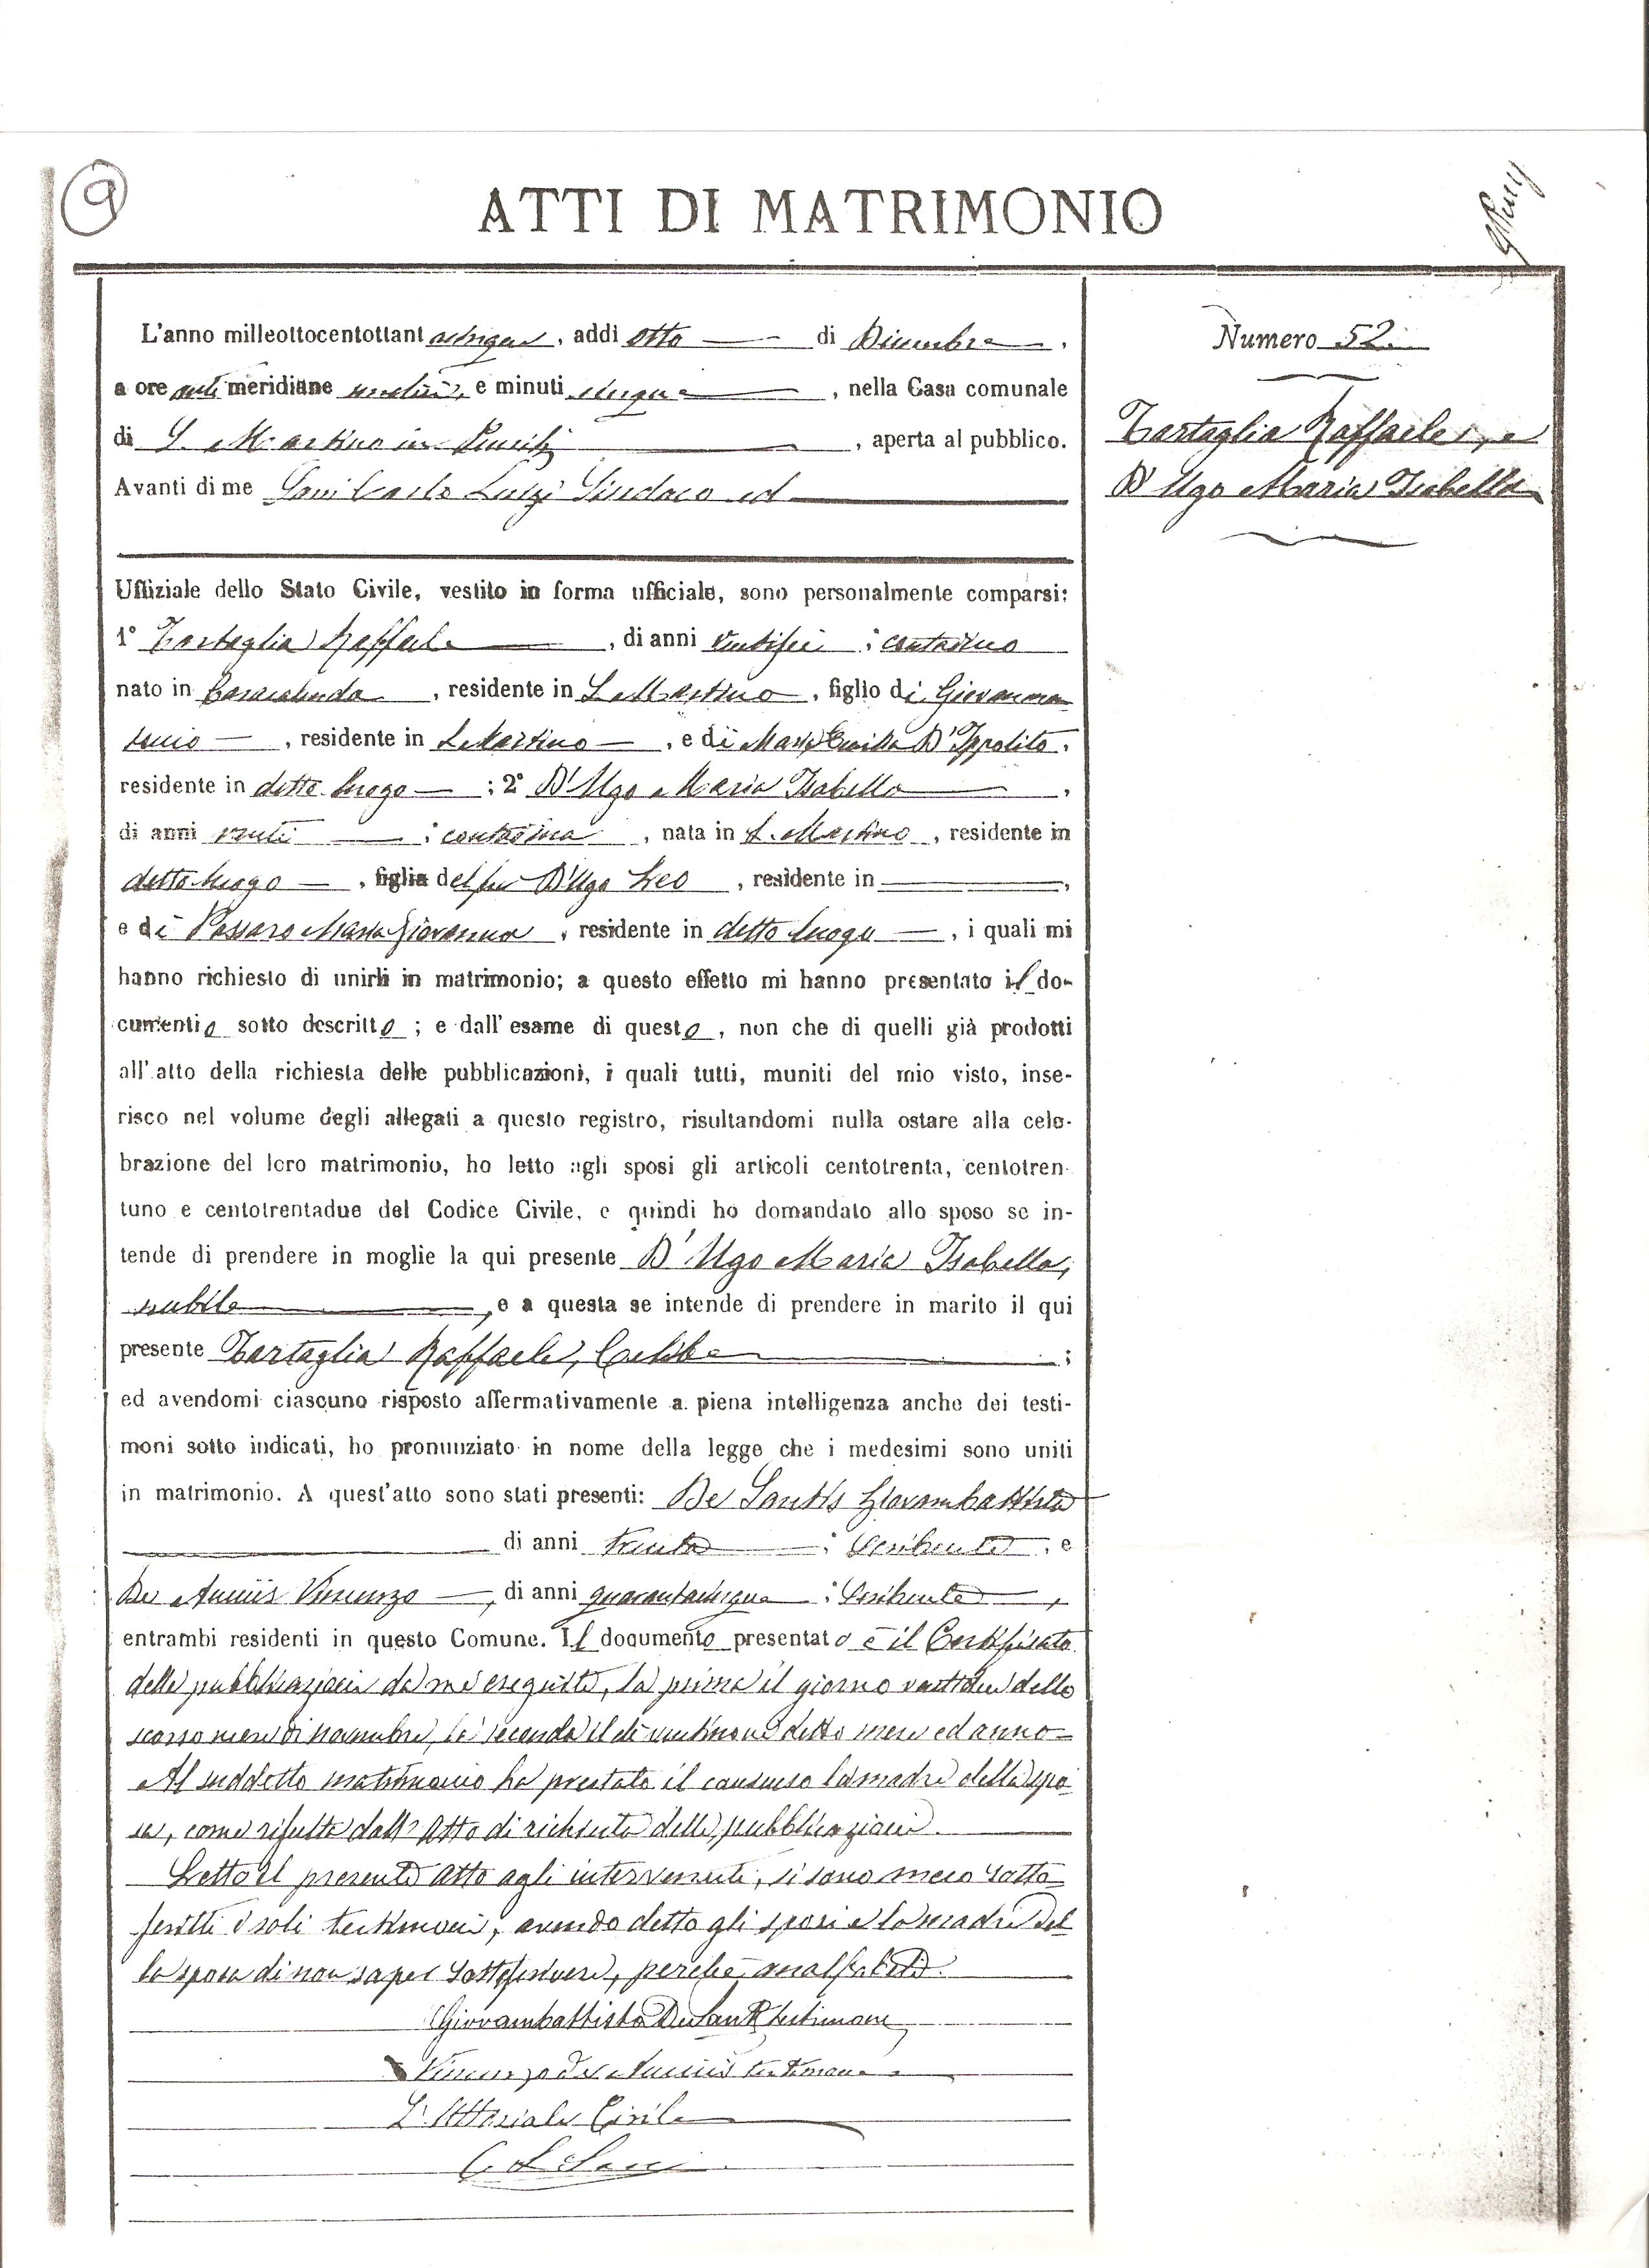 9
ATTI DI MATRIMONIO
L'anno milleottocentottant acinque, addì otto di Dicembre,
a ore anti meridiane undici, e minuti cinque, nella Casa comunale
di S. Martino in Pensilis, aperta al pubblico.
Avanti di me Sassi Carlo Luigi Sindaco ed
Uffiziale dello Stato Civile, vestito in forma ufficiale, sono personalmente comparsi:
1° Tartaglia Raffaele, di anni ventisei; contadino
nato in Casacalenda, residente in S. Martino, figlio di Giovanni
, residente in S. Martino, e di Maria Emilia D'Ippolito,
residente in detto luogo; 2° D'Ugo Maria Isabella,
di anni venti; contadina, nata in S. Martino, residente in
detto luogo, figlia del fu D'Ugo Leo, residente in ,
e di Passaro Maria Giovanna, residente in detto luogo, i quali mi
hanno richiesto di unirli in matrimonio; a questo effetto mi hanno presentato il do-
cumento sotto descritto; e dall'esame di questo, non che di quelli già prodotti
all'atto della richiesta delle pubblicazioni, i quali tutti, muniti del mio visto, inse-
risco nel volume degli allegati a questo registro, risultandomi nulla ostare alla cele-
brazione del loro matrimonio, ho letto agli sposi gli articoli centotrenta, centotren-
tuno e centotrentadue del Codice Civile, e quindi ho domandato allo sposo se in-
tende di prendere in moglie la qui presente D'Ugo Maria Isabella,
nubile, e a questa se intende di prendere in marito il qui
presente Tartaglia Raffaele, Celibe;
ed avendomi ciascuno risposto affermativamente a piena intelligenza anche dei testi-
moni sotto indicati, ho pronunziato in nome della legge che i medesimi sono uniti
in matrimonio. A quest'atto sono stati presenti: De Santis Giovambattista
di anni trenta; Scribente, e
De Anniis Vincenzo, di anni quarantacinque; Scribente,
entrambi residenti in questo Comune. Il documento presentato è il Certificato
delle pubblicazioni da me eseguite, la prima il giorno ventidue dello
scorso mese di novembre, la seconda il dì ventinove detto mese ed anno=
Al suddetto matrimonio ha prestato il consenso la madre della spo
sa, come risulta dall'Atto di richiesta delle pubblicazioni.
Letto il presente Atto agli intervenuti, si sono meco sotto=
scritti i soli testimoni, avendo detto gli sposi e la madre del
la sposa di non saper sottoscrivere, perché analfabeti.
Giovambattista De Santis testimone
Vincenzo de Anniis testimone
L'Uffiziale Civile
Numero 52.
Tartaglia Raffaele, e
D'Ugo Maria Isabella